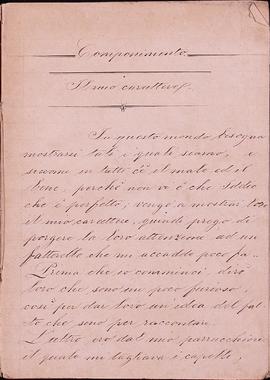 Componimento
Il mio carattere.
In questo mondo bisogna
mostrarsi tali e quali siamo, e
siccome in tutti c'è il male ed il
bene, perchè non vi è che Iddio
che è perfetto, vengo a mostrar loro
il mio carattere, quindi prego di
porgere la loro attenzione ad un
fatterello che mi accadde poco fa.
Prima che io cominci, dirò
loro che sono un poco
così per dar loro un'idea del fat-
to che sono per raccontare.
L'altro ero dal mio parrucchiere
il quale mi tagliava i capelli,